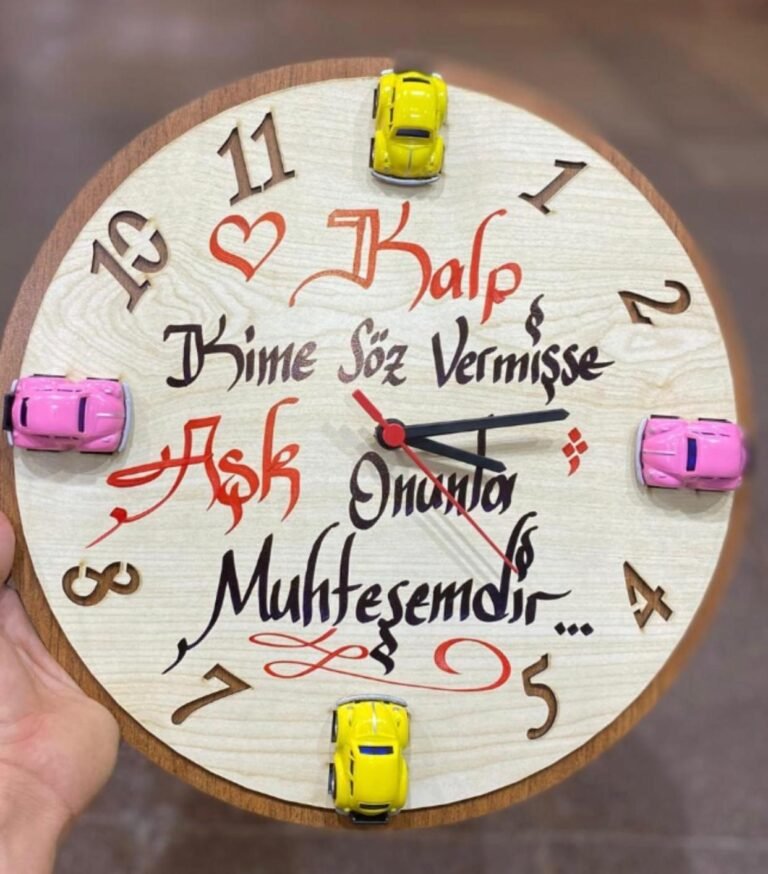 11
1
10
2
Kalp
Kime Söz Vermişse
Aşk
Onunla
Muhteşemdir...
8
4
7
5